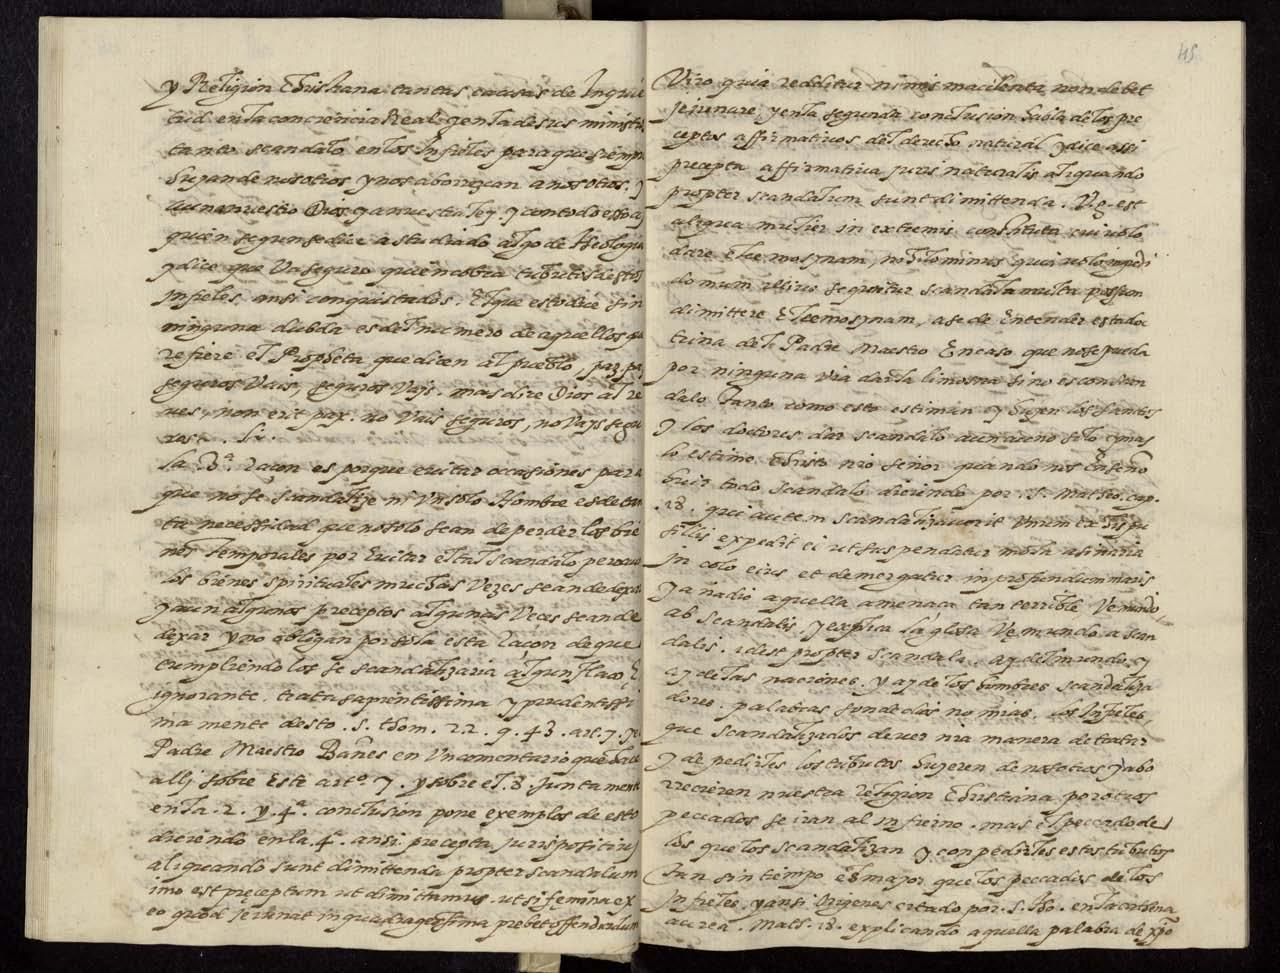 y Religion Christiana tantas causas de Inquie
tud. en la conciencia Real. y en la de sus ministr
tanto scandalo en los Infieles para que siempr
huyan de nosotros y nos aborrezcan a nosotros. y
aun a nuestro Dios y a nuestra ley. y con todo esso ay
quien segun se dice a studiado algo de theologia
y dice que Va seguro quien cobra tributos destos
Infieles ansi conquistados. El que esto dice sin
ninguna dubda es del numero de aquellos que
refiere el Propheta que dicen al pueblo, paz paz
seguros Vais, seguros Vays. mas dice Dios al re
ues, non erit pax. no Vais seguros, no Vays segu
ros.
la .3ª. Racon es porque euitar occasiones para
que no se scandalize ni Vn solo Hombre es de tan
ta necessidad que no solo sean de perder los bie
nes temporales por Euitar el tal scandalo pero aun
los bienes spirituales muchas Vezes se an de dexar
y aun algunos preceptos algunas Veces se an de
dexar y no obligan por sola esta Racon de que
cumpliendo los se scandalizaria algun flaco E
ignorante. trata sapientissima y prudentissi
mamente desto .s. thom. 22. q. 43. art. 7. y el
Padre Maestro Bañes en Vn comentario que hace
alli sobre Este artº. 7. y sobre el .8. juntamente
en la .2. y .4ª. conclusion pone exemplos de esto
diciendo en la .4ª. ansi. precepta juris positiui
aliquando sunt dimittenda propter scandalum
imo est pręceptum ut dimittamus. ut si femina ex
eo quod jejunat in quadragessima prebet offendiculum
45
Viro quia redditur nimis macilenta non debet
jejunare. y en la segunda conclusion habla de los pre
ceptos affirmatiuos del derecho natural y dice assi
precepta affirmatiua juris naturalis aliquando
propter scandalum sunt dimittenda. V. g. est
aliqua mulier in extremis constituta cui volo
dare eleemosynam, nihilominus
dimittere Eleemosynam, a se de Entender esta doc
trina del Padre Maestro En caso que no se pueda
por ninguna via dar la limosna sino es con scan
dalo. tanto como esto estiman y huyen los sanctos
y los doctores dar scandalo aun a uno solo. y mas
lo estimo Christo nro señor quando nos Enseño
huir todo scandalo diciendo por .S. Matteo cap.
.18. qui autem scandalizauerit Vnum ex his pu
sillis expedit ei ut suspendatur mola asinaria
in colo eius et demergatur in profundum maris
y añadio aquella amenaca tan terrible. Ve mundo
ab scandalis. y explica la glosa Ve mundo a scan
dalis. idest propter scandala. ay del mundo. y
ay de las naciones. y ay de los hombres scandaliza
dores. palabras son de dios no mias. los Infieles,
que scandalizados de ver nra manera de tratar
y de pedirles los tributos huyeren de nosotros y abo
rrecieren nuestra religion Christiana por otros
peccados se iran al infierno. mas el peccado de
los que los scandalizan y con pedirles estos tributos
tan sin tiempo es mayor que los peccados de los
Infieles. y ansi Origenes citado por .S. tho. en la cathena
aurea. Matt. 18. explicando aquella palabra de xpo